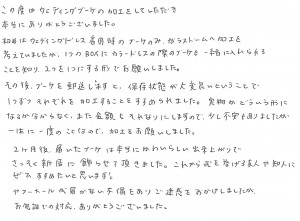 この度はウェディングブーケの加工をしていただき
本当にありがとうございました。
初めはウェディングドレス着用時のブーケのみ、ガラスドームへ加工を
考えていましたが、1つのBOXにカラードレスの際のブーケも一緒に入れられる
ことを知り、2つを1つにする形でお願いしました。
その後、ブーケを郵送しますと、保存状態が大変良いということで
1つずつそれぞれを加工することをすすめられました。実物がどういう形に
なるか分からなく、また金額もそれなりにしますので、少し不安もありましたが
一生に一度のことなので、加工をお願いしました。
2ヶ月後、届いたブーケは本当にかわいらしい出来上がりで
さっそく新居に飾らせて頂きました。これから式を挙げる友人や知人に
ぜひすすめたいと思います。
やフーメールが届かない不備もありご迷惑をおかけしましたが、
お電話での対応、ありがとうございました。